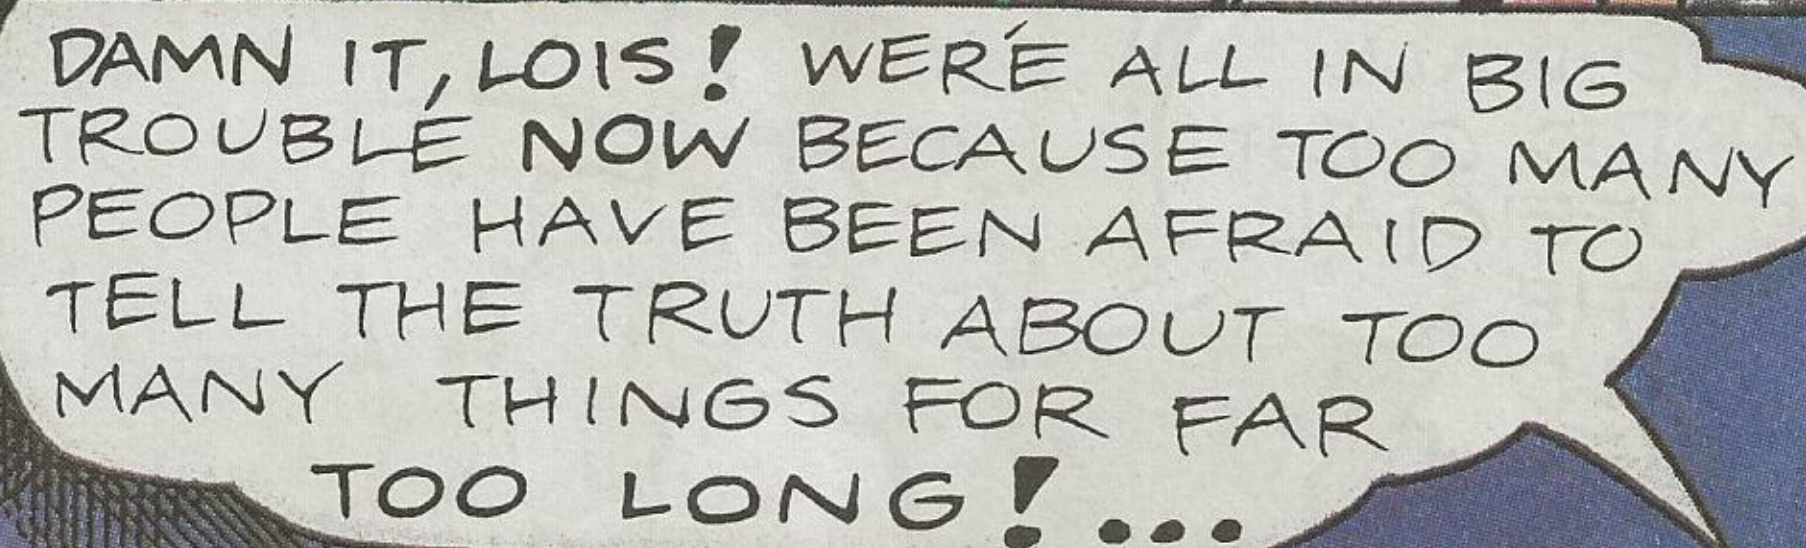 DAMN IT, LOIS! WERE'E ALL IN BIG
TROUBLE NOW BECAUSE TOO MANY
PEOPLE HAVE BEEN AFRAID TO
TELL THE TRUTH ABOUT TOO
MANY THINGS FOR FAR
TOO LONG!...